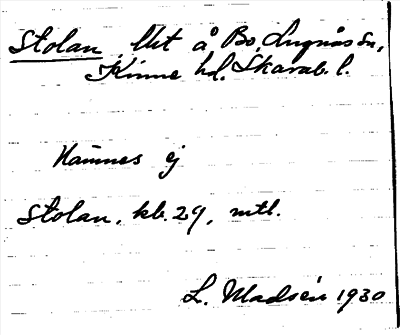 Stolan, Utt å Bo, Lugnås sn,
Kinne hd. Skarab. l.
Kännes ej
Stolan. kb. 29, mtl.
L. Madsén 1930